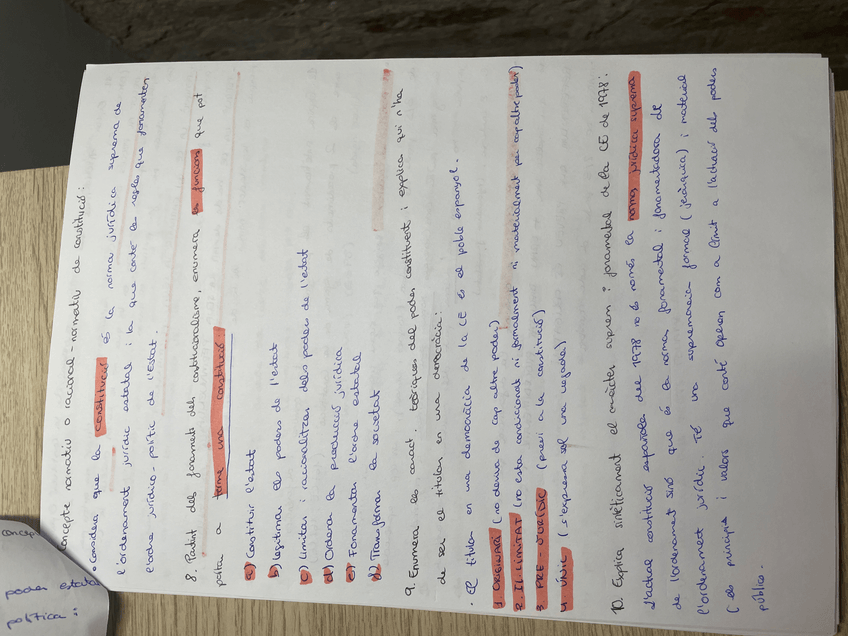 concepte normatiu o racional-normatiu de constitució:
• Considera que la constitució és la norma jurídica suprema de
l'ordenament jurídic estatal i la que conté les regles que fonamenten
l'ordre jurídico-polític de l'Estat.
8. Partint dels fonaments del constitucionalisme, enumera les funcions que pot
portar a terme una constitució:
a) Constituir l'estat
b) legitimar els poders de l'estat
c) Limitar i racionalitzar dels poders de l'estat
d) Ordenar la producció jurídica
e) Fonamentar l'ordre estatal
f) Transformar la societat
9. Enumera les caract. teòriques del poder constituent i explica qui n'ha
de ser el titular en una democràcia:
• El titular en una democràcia de la CE és el poble espanyol.
1. ORIGINARI (no deriva de cap altre poder)
2. IL·LIMITAT (no està condicionat ni formalment ni materialment per cap altre poder)
3. PRE-JURÍDIC (previ a la constitució)
4. ÚNIC (s'expressa sol una vegada)
10. Explica sintèticament el caràcter suprem i fonamental de la CE de 1978:
L'actual constitució española del 1978 no és només la norma jurídica suprema
de l'ordenament sinó que és la norma fonamental i fonamentadora de
l'ordenament jurídic. Té una supremacia formal (jeràrquia) i material
(els principis i valors que conté operen com a límit a l'actuació dels poders
públics.
concep
poder estatal
política: